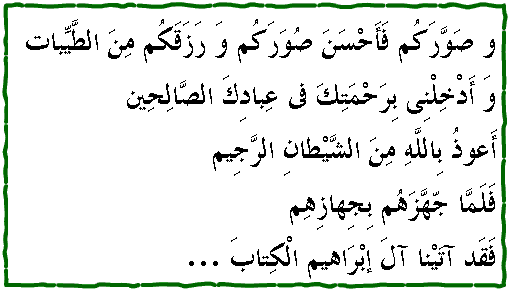 و صَوَّرَكُم فَأَحْسَنَ صُوَرَكُم وَ رَزَقَكُم مِنَ الطَّيِّبات
وَ أَدْخِلْنِى بِرَحْمَتِكَ فى عِبادِكَ الصَّالِحِين
أَعوذُ بِاللَّهِ مِنَ الشَّيْطانِ الرَّجِيم
فَلَمَّا جّهَّزَهُم بِجِهازِهِم
فَقَد آتَيْنا آلَ إبْرَاهيم الْكِتابَ ...